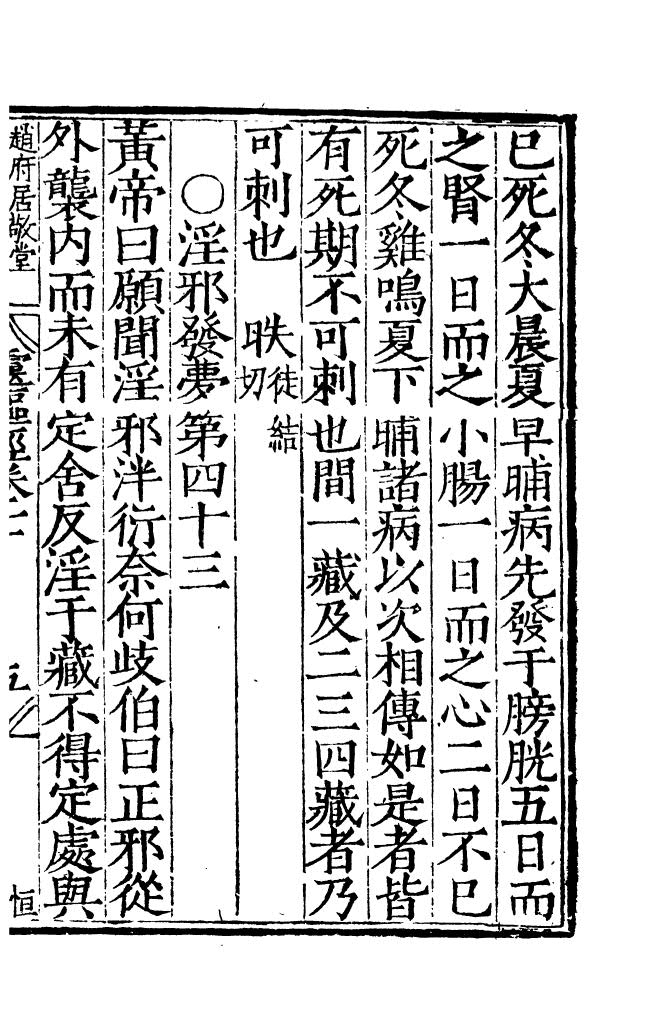 已死冬大晨夏早晡病先發于膀胱五日而
之腎一日而之小腸一日而之心二日不已
死冬雞鳴夏下晡諸病以次相傳如是者皆
有死期不可刺也間一藏及二三四藏者乃
可刺也 昳徒結切
○淫邪發夢第四十三
黃帝曰願聞淫邪泮衍奈何歧伯曰正邪從
外襲内而未有定舍反淫于藏不得定處與
趙府居敬堂 靈樞經卷 恒